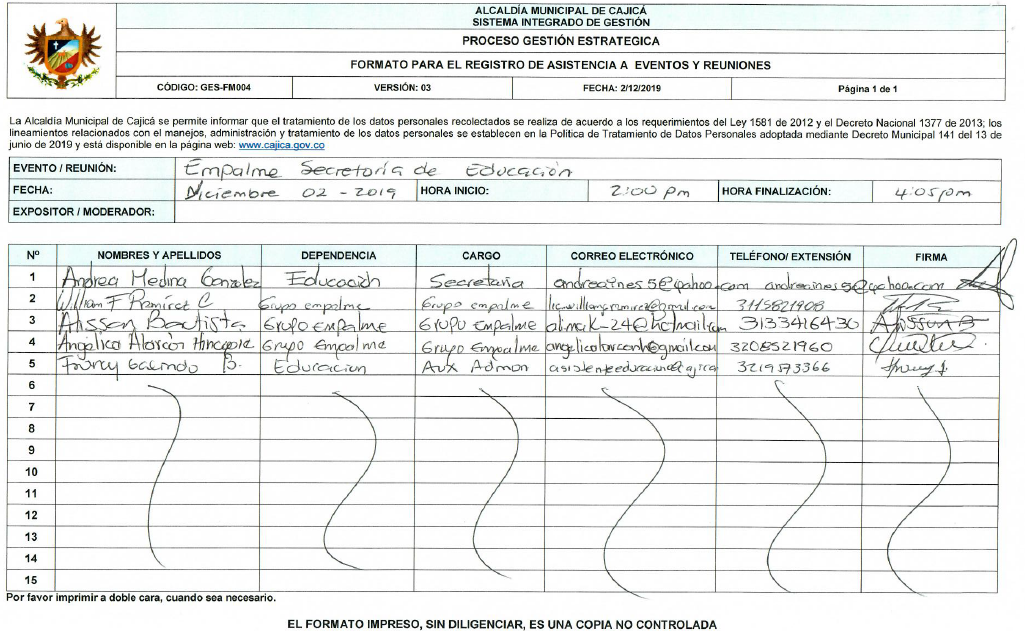 ALCALDÍA MUNICIPAL DE CAJICÁ
SISTEMA INTEGRADO DE GESTIÓN
PROCESO GESTIÓN ESTRATEGICA
FORMATO PARA EL REGISTRO DE ASISTENCIA A EVENTOS Y REUNIONES
CÓDIGO: GES-FM004 VERSIÓN: 03 FECHA: 2/12/2019 Página 1 de 1
La Alcaldía Municipal de Cajicá se permite informar que el tratamiento de los datos personales recolectados se realiza de acuerdo a los requerimientos del Ley 1581 de 2012 y el Decreto Nacional 1377 de 2013; los
lineamientos relacionados con el manejos, administración y tratamiento de los datos personales se establecen en la Política de Tratamiento de Datos Personales adoptada mediante Decreto Municipal 141 del 13 de
junio de 2019 y está disponible en la página web: www.cajica.gov.co
EVENTO / REUNIÓN: Empalme Secretoría de Educación
FECHA: Diciembre 02 - 2019 HORA INICIO: 2:00 pm HORA FINALIZACIÓN: 4:05pm
EXPOSITOR / MODERADOR:
Nº NOMBRES Y APELLIDOS DEPENDENCIA CARGO CORREO ELECTRÓNICO TELÉFONO/ EXTENSIÓN FIRMA
1 Andrea Medina Gonzalez Educación Secretaria andreaines5@yahoo.com andreaines5@yahoo.com
2 William F Ramírez C Grupo empalme Grupo empalme 3115821908
3 Alisson Bautista Grupo Empalme Grupo Empalme almak-24@hotmail.com 3133416430 Alisson B
4 Angelica Alarcón Hincapie Grupo Empalme Grupo Empalme 3208521960
5 Educacion Aux Admon 3219573366
6
7
8
9
10
11
12
13
14
15
Por favor imprimir a doble cara, cuando sea necesario.
EL FORMATO IMPRESO, SIN DILIGENCIAR, ES UNA COPIA NO CONTROLADA